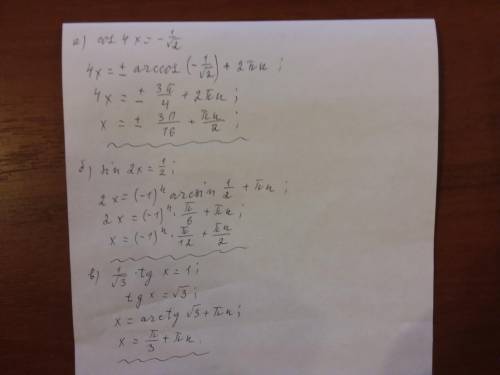 а) cos 4x = -1/√2
4x = ± arccos(-1/√2) + 2πn ;
4x = ± 3π/4 + 2πn ;
x = ± 3π/16 + πn/2 ;
б) sin 2x = 1/2 ;
2x = (-1)ⁿ arcsin 1/2 + πn ;
2x = (-1)ⁿ · π/6 + πn ;
x = (-1)ⁿ · π/12 + πn/2
в) 1/√3 · tg x = 1 ;
tg x = √3 ;
x = arctg √3 + πn ;
x = π/3 + πn.